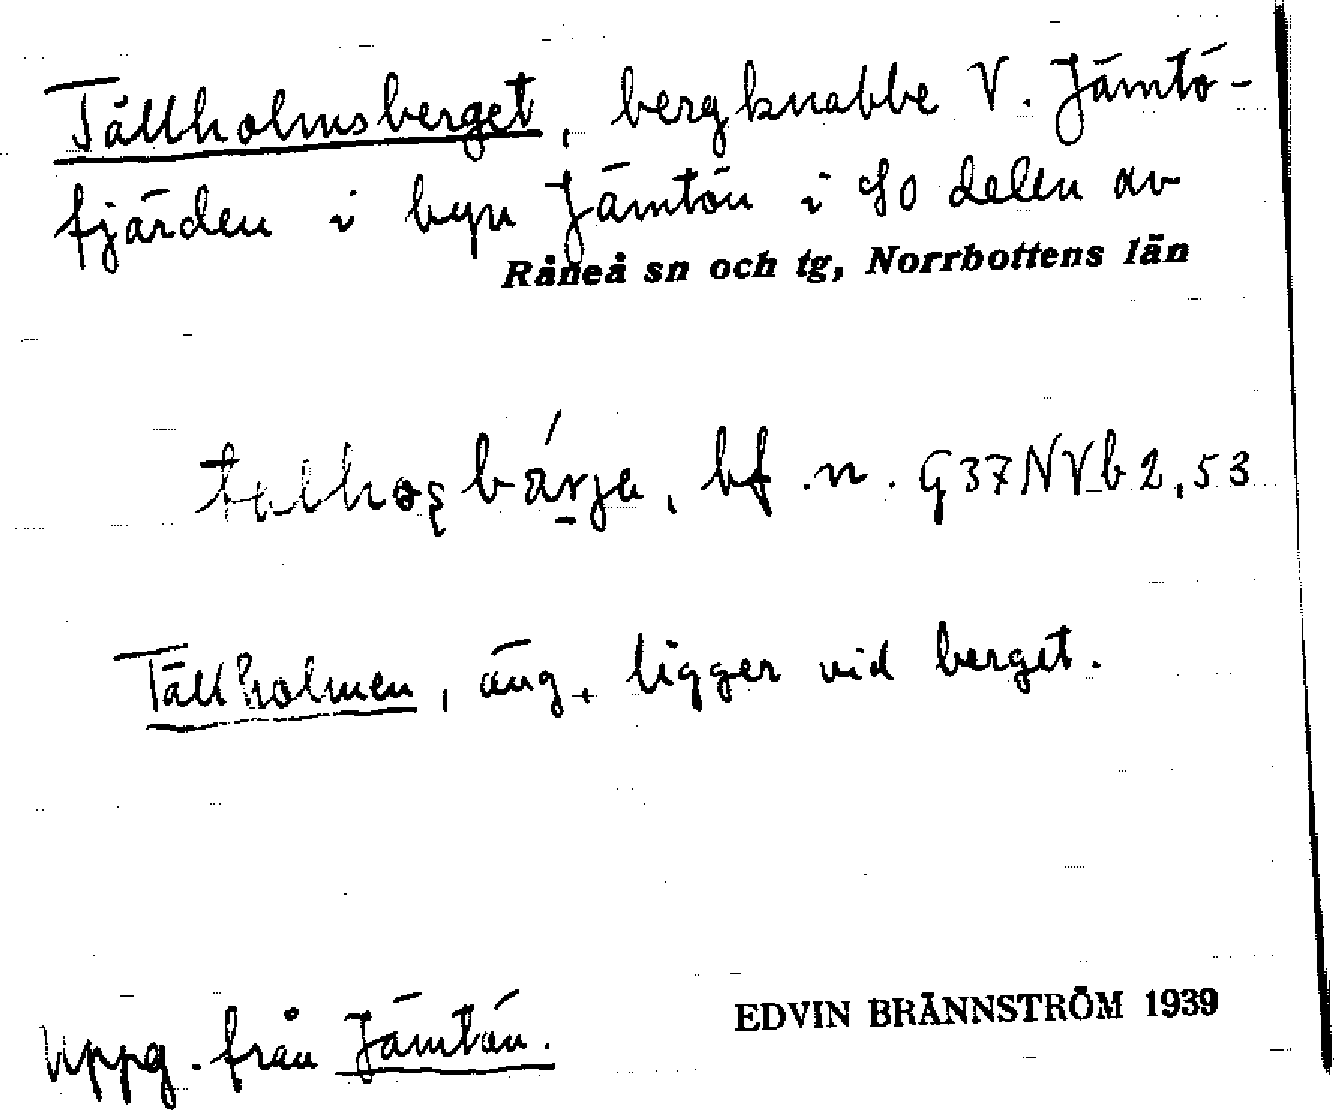 Tällholmsberget, bergknabbe V. Jämtö-
fjärden i byn Jämtön i SO delen av
Råneå sn och tg, Norrbottens län
bf. n. G37NVb2,53
Tällholmen, äng, ligger vid berget.
Uppg. från Jämtön.
EDVIN BRÄNNSTRÖM 1939